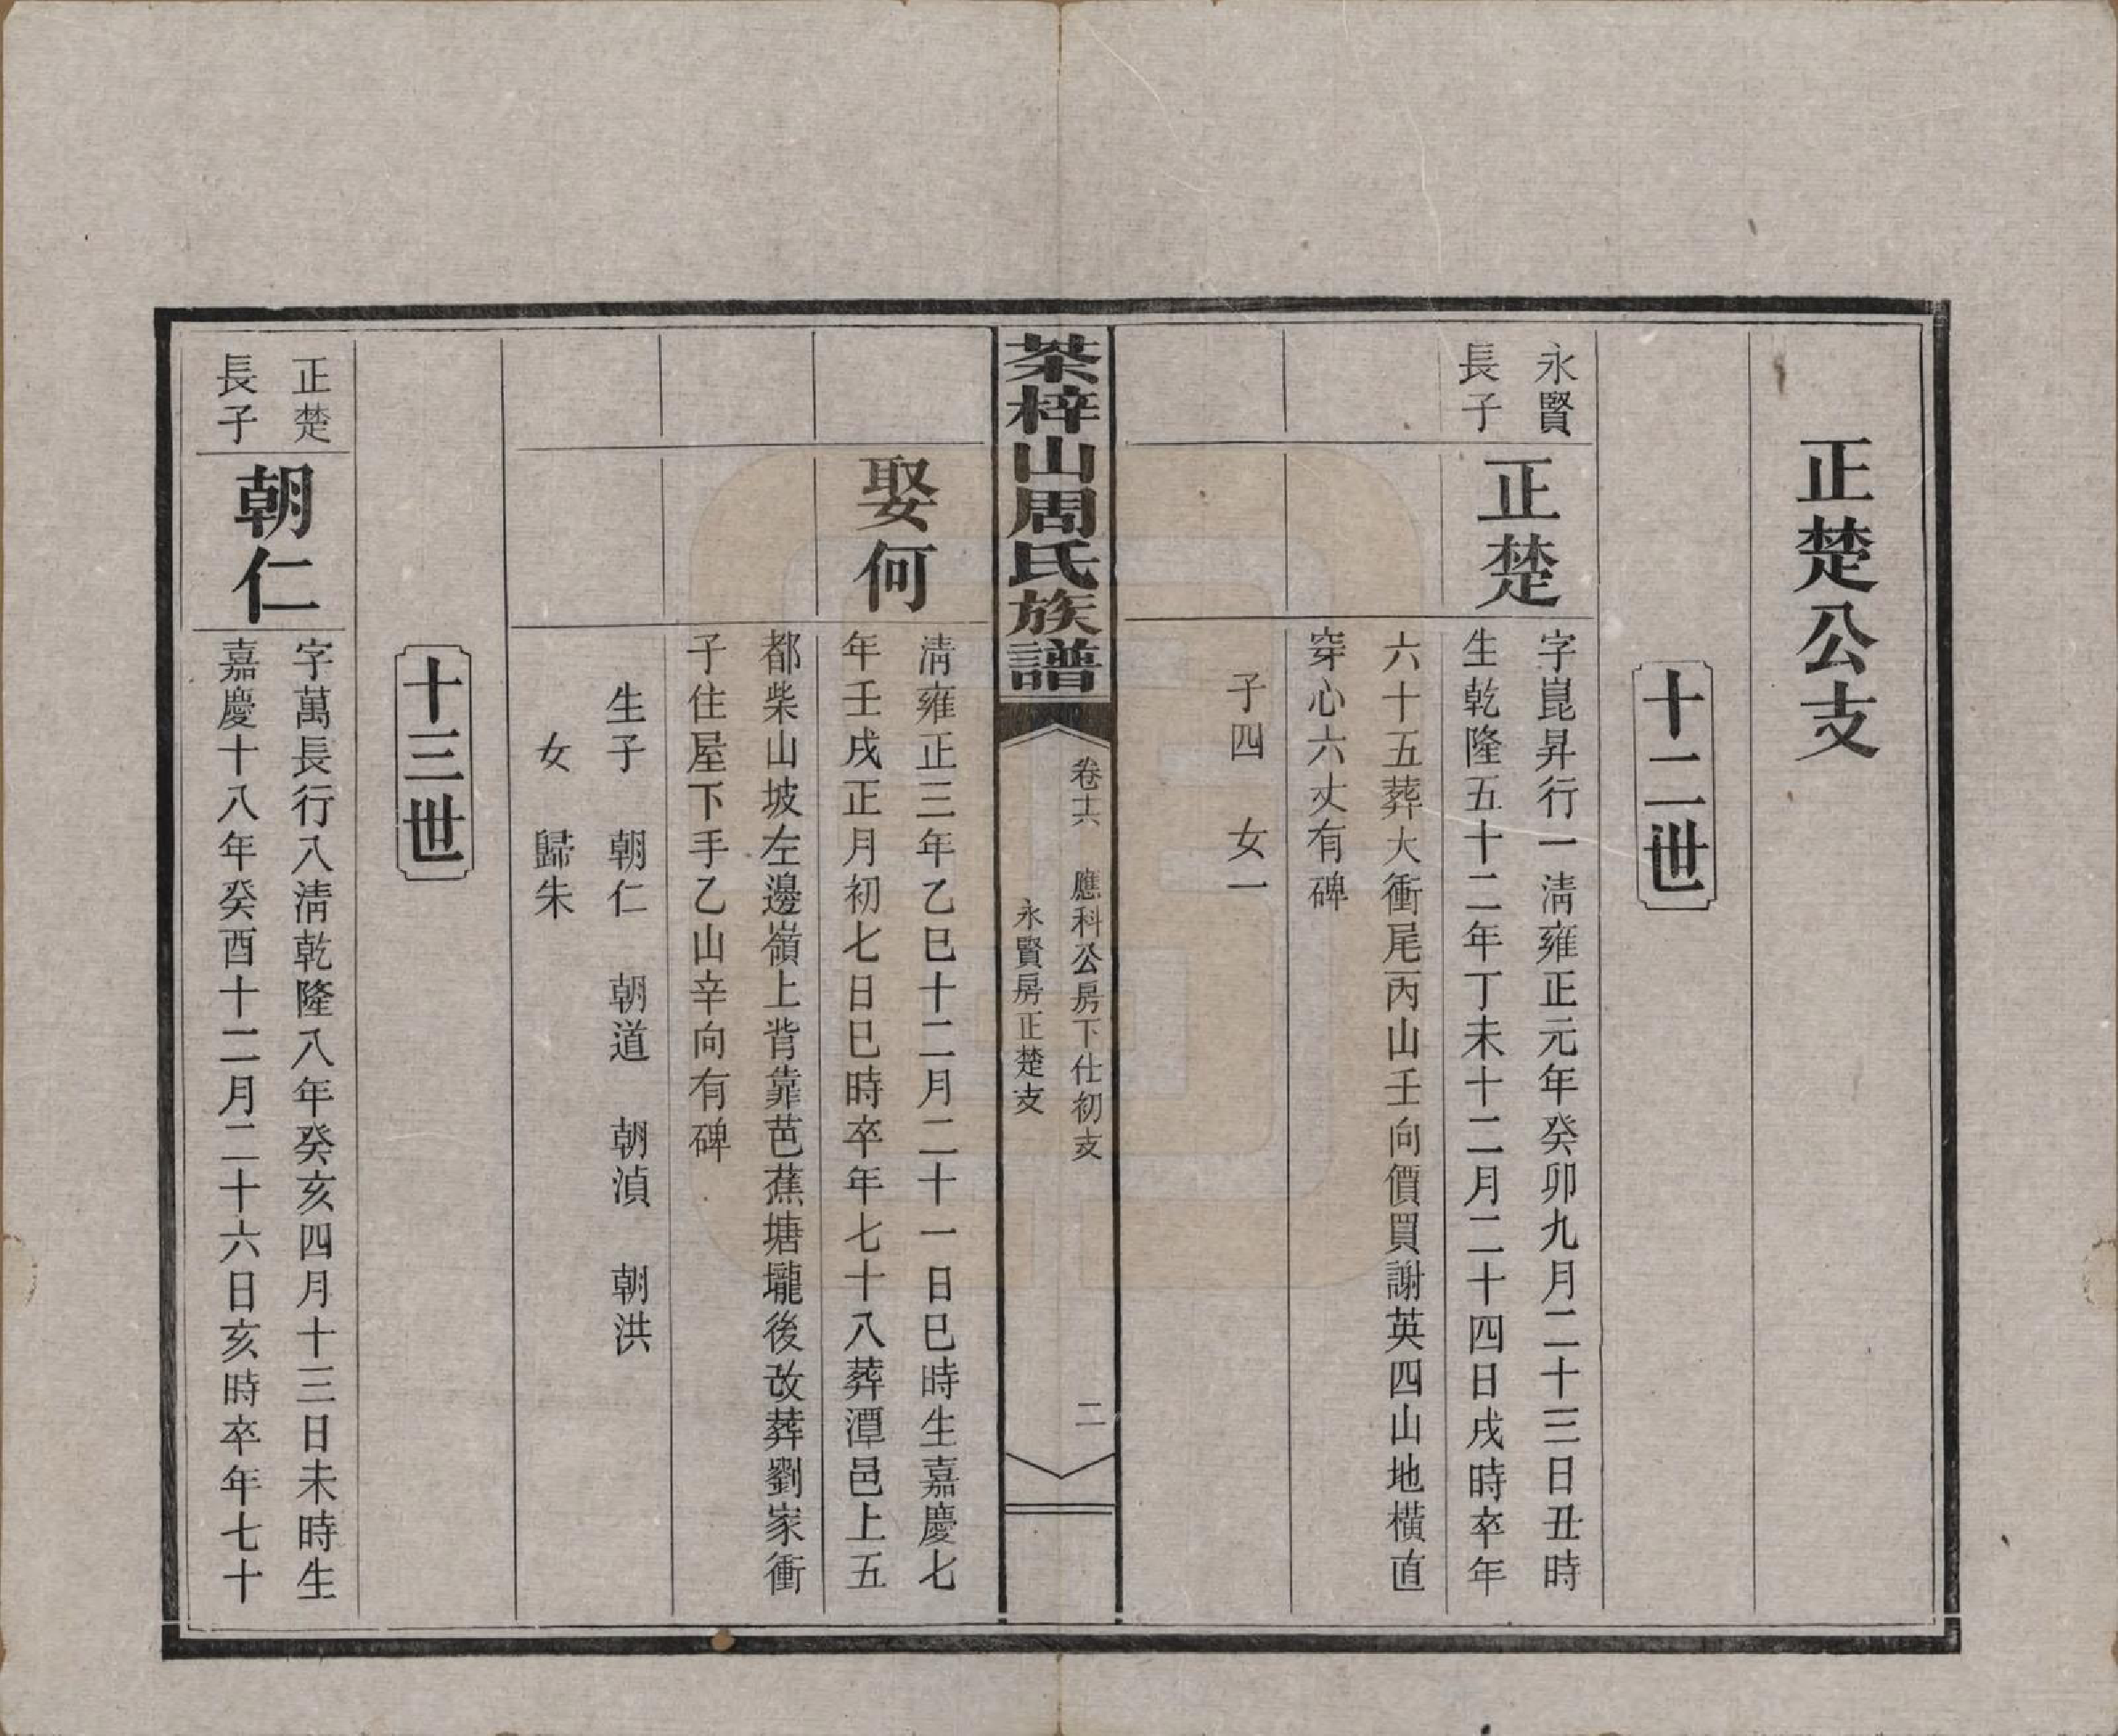 正楚公支
十二世
永賢
長子
正楚
字崑昇行一清雍正元年癸卯九月二十三日丑時
生乾隆五十二年丁未十二月二十四日戌時卒年
六十五葬大衝尾丙山壬向價買謝英四山地橫直
穿心六丈有碑
子四　女一
茶梓山周氏族譜
卷十六　應科公房下仕初支
永賢房正楚支
二
娶何
清雍正三年乙巳十二月二十一日巳時生嘉慶七
年壬戌正月初七日巳時卒年七十八葬潭邑上五
都柴山坡左邊嶺上背靠芭蕉塘壠後改葬劉家衝
子住屋下手乙山辛向有碑
生子　朝仁　朝道　朝湞　朝洪
女　歸朱
十三世
正楚
長子
朝仁
字萬長行八清乾隆八年癸亥四月十三日未時生
嘉慶十八年癸酉十二月二十六日亥時卒年七十